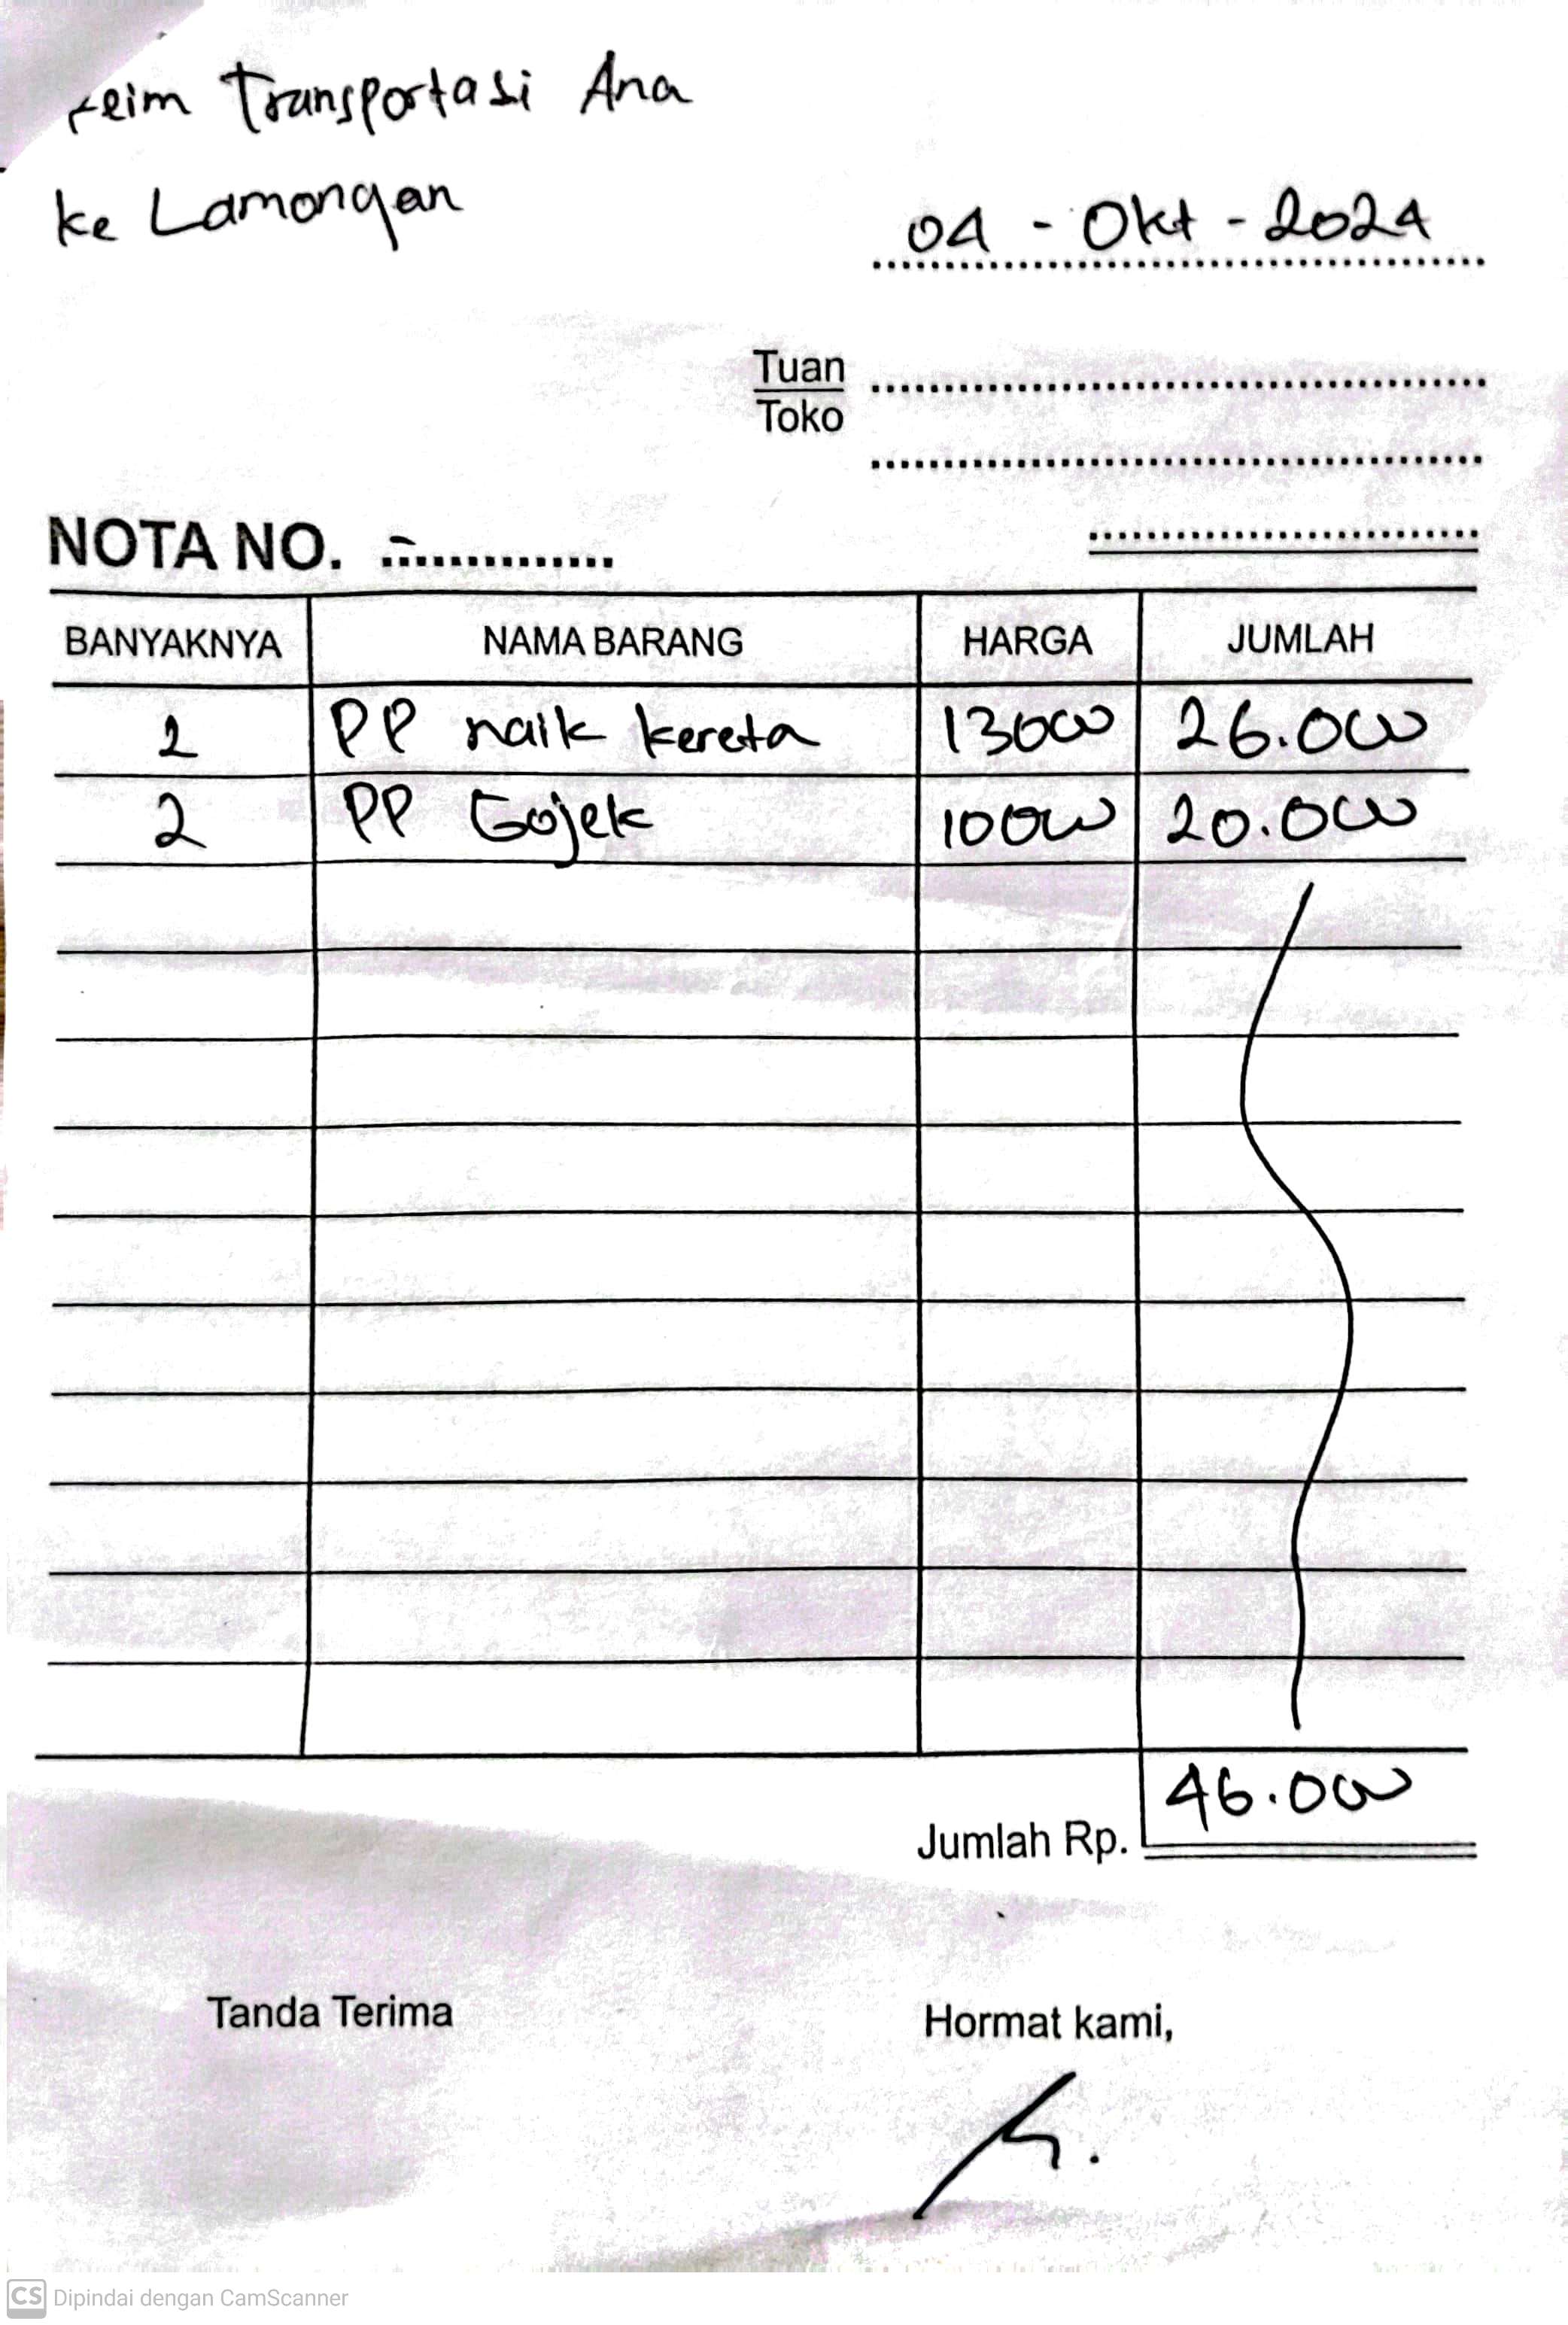 Transportasi Ana
ke Lamongan
04 - Okt - 2024
Tuan
Toko
NOTA NO. -
BANYAKNYA NAMA BARANG HARGA JUMLAH
2 PP naik kereta 13000 26.000
2 PP Gojek 10000 20.000
Jumlah Rp. 46.000
Tanda Terima Hormat kami,
CS Dipindai dengan CamScanner